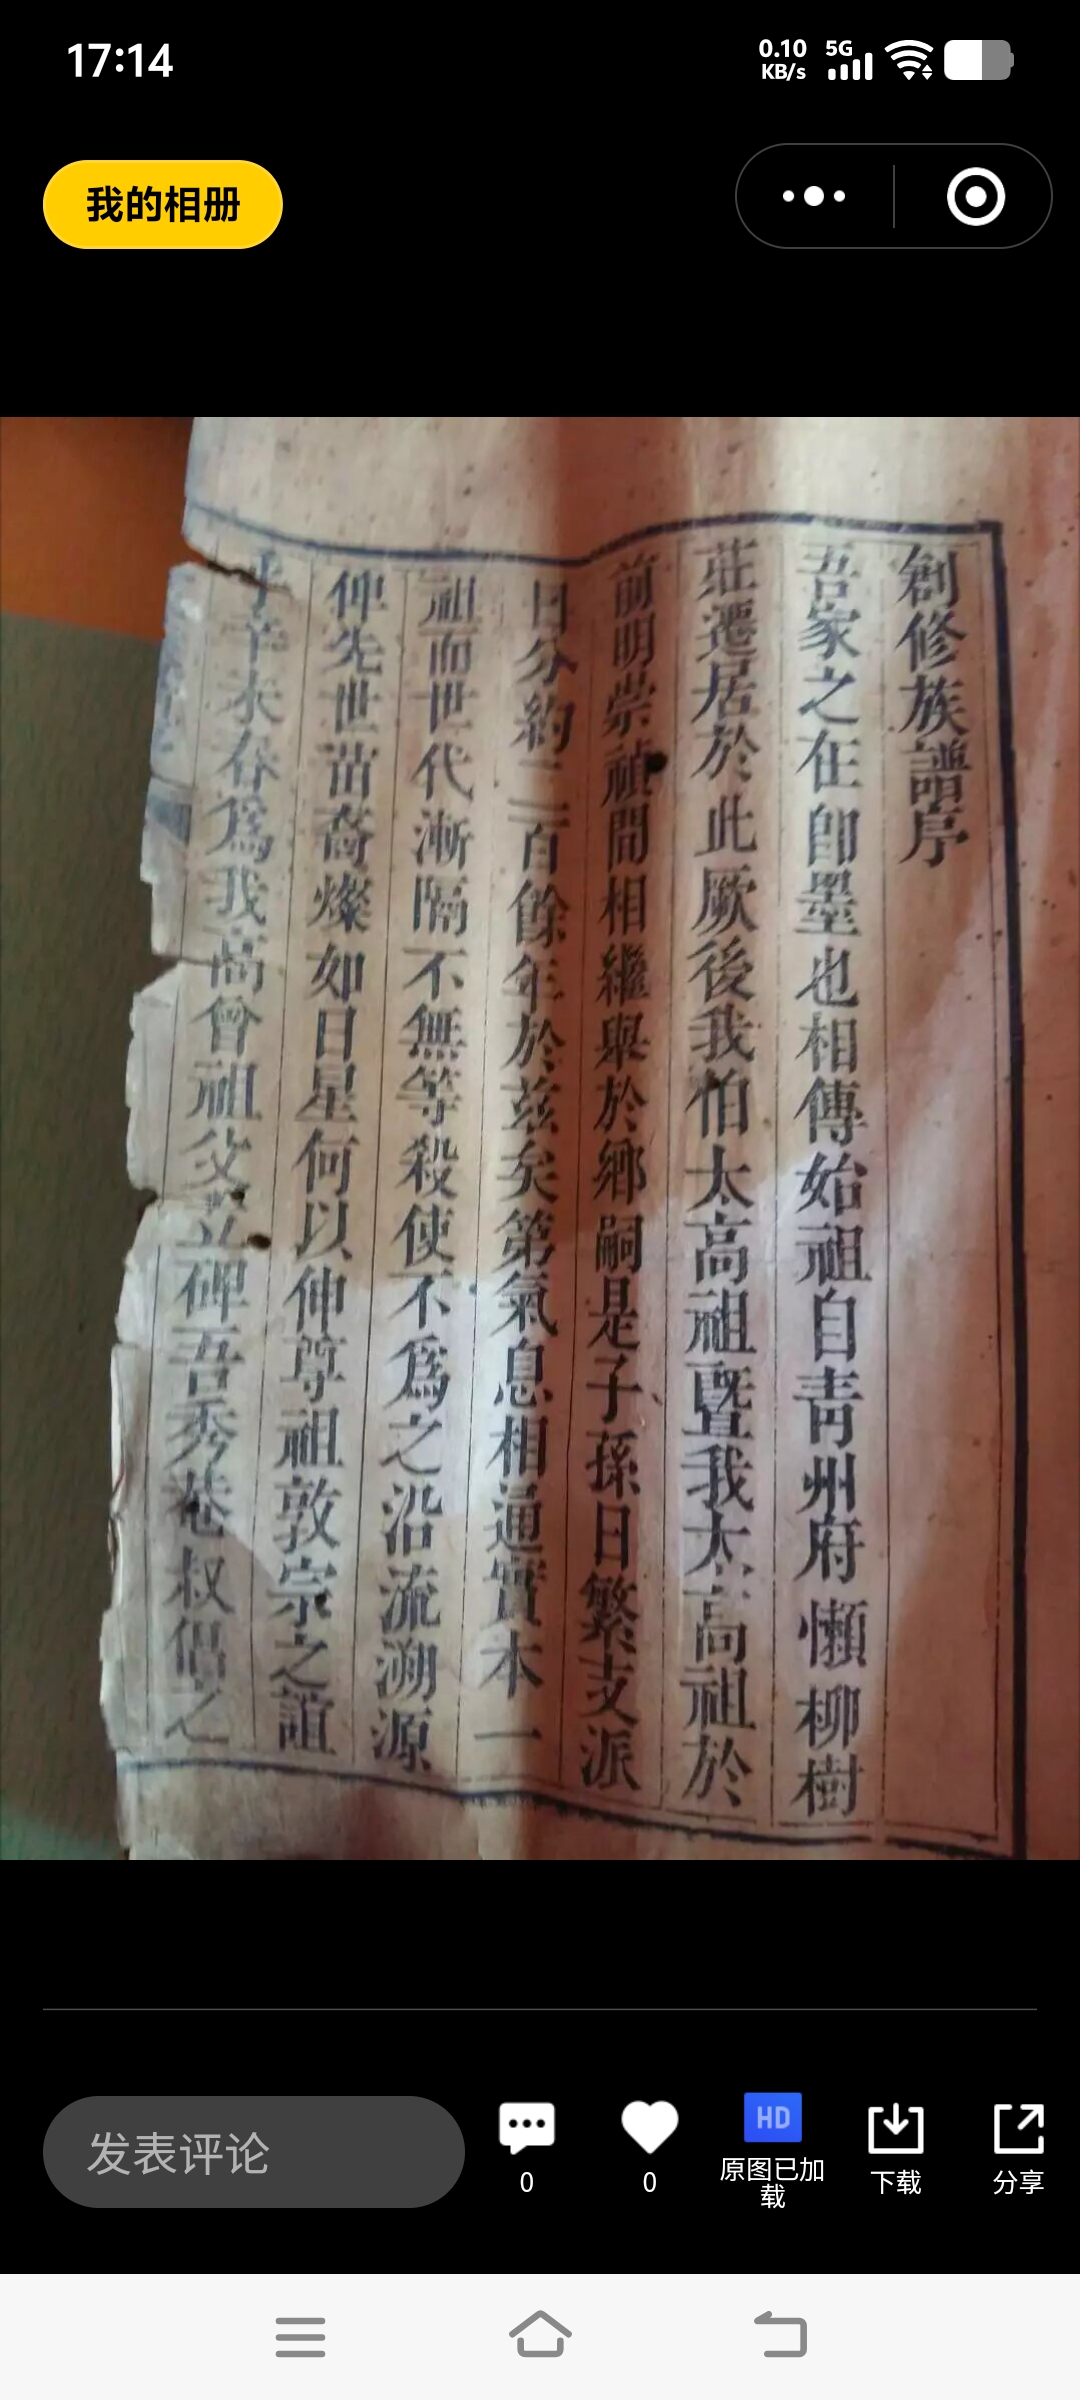 17:14
0.10
KB/s
5G
我的相册
創修族譜序
吾家之在卽墨也相傳始祖自青州府懶柳樹
莊遷居於此厥後我怕太高祖暨我太高祖於
前明崇禎間相繼舉於鄉嗣是子孫日繁支派
日分約二百餘年於茲矣第氣息相通實本一
祖而世代漸隔不無等殺使不為之沿流溯源
俾先世苗裔燦如日星何以伸尊祖敦宗之誼
未春為我高曾祖父立碑吾秀巷叔倡之
发表评论
0
0
HD
原图已加
载
下载
分享